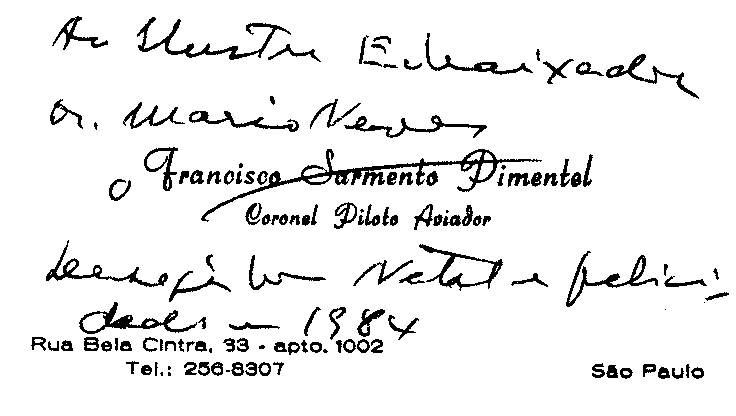 Ao Ilustre Embaixador
Dr. Mario Neves
o Francisco Sarmento Pimentel
Coronel Piloto Aviador
deseja bom Natal e felici-
dades em 1984
Rua Bela Cintra, 93 - apto. 1002
Tel.: 256-8307
São Paulo